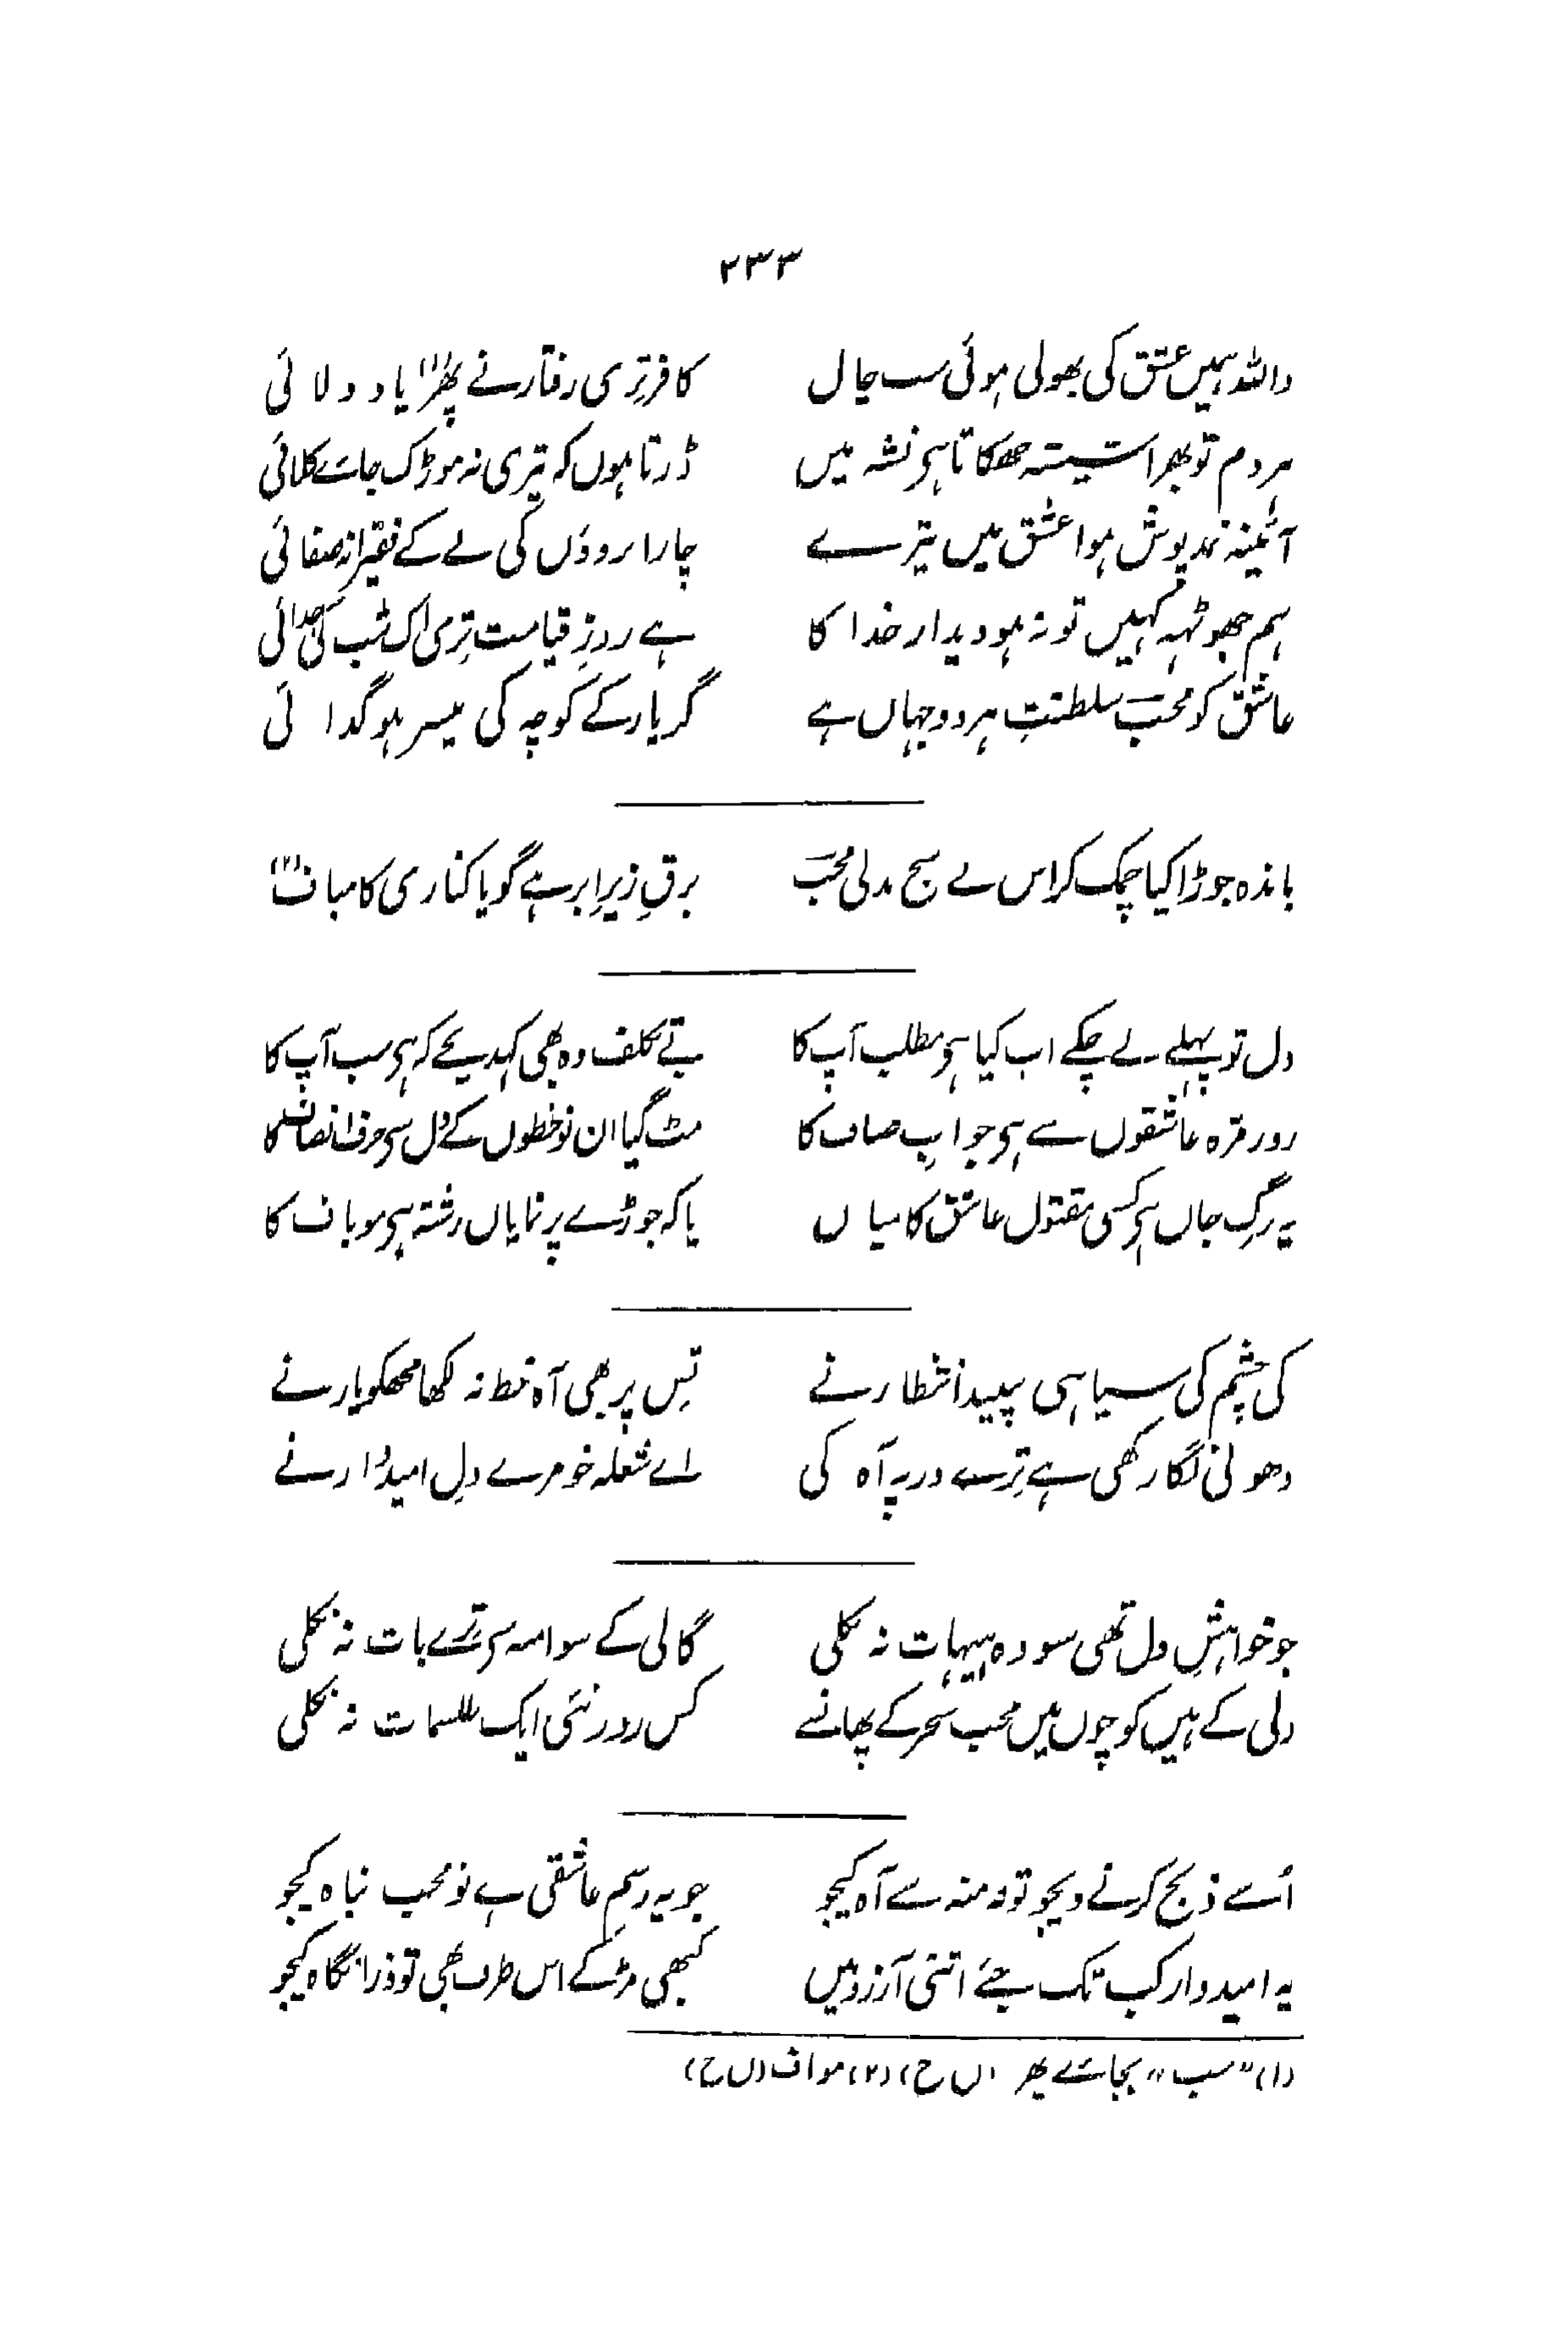 ۲۳۳
واللہ ہمیں عشق کی بھولی ہوئی سب چال کافر تِری رفتار نے پھر(۱) یاد دلائی
ہر دم تو بھرا شیشہ جھکاتا ہی نشہ میں ڈرتا ہوں کہ تیری نہ موڑک جائے کلائی
آئینہ نمد پوش ہوا عشق میں تیرے چار ابروؤں کی لے کے فقیرانہ صفائی
ہم جھوٹھ کہیں تو نہ ہو دیدار خدا کا ہے روزِ قیامت تِری اک شب کی جدائی
عاشق کو محبؔ سلطنتِ ہر دو جہاں ہے گر یار کے کوچہ کی میسر ہو گدائی
باندہ جوڑا کیا چمک کر اس نے سج بدلی محبؔ برقِ زیرِ ابر ہے گویا کناری کا مباف(۲)
دل تو پہلے لے چکے اب کیا ہی مطلب آپ کا بے تکلف وہ بھی کہدیجے کہ ہی سب آپ کا
روز مرہ عاشقوں سے ہی جوابِ صاف کا مٹ گیا ان نوخطوں کے دل سی حرف انصاف کا
یہ رگِ جاں ہی کسی مقتول عاشق کا میاں یا کہ جوڑے پر نمایاں رشتہ ہی موباف کا
کی چشم کی سیاہی سپید انتظار نے تِس پر بھی آہ خط نہ لکھا مجھکو یار نے
دھونی لگا رکھی ہے تِرے در پہ آہ کی اے شعلہ خو مرے دلِ امیدوار نے
جو خواہشِ دل تھی سو وہ ہیہات نہ نکلی گالی کے سوا منہ سی ترے بات نہ نکلی
دلی کے ہیں کوچوں میں محب سحر کے پھانسے کس روز نئی ایک طلسمات نہ نکلی
اُسے ذبح کرنے دیجو تو نہ منہ سے آہ کیجو جو یہ رسمِ عاشقی ہے تو محب نباہ کیجو
یہ امیدوار کب تک جئے اتنی آرزو میں کبھی مڑ کے اس طرف بھی تو ذرا نگاہ کیجو
(۱) "سب" بجائے پھر (ل ح) (۲) مواف (ل ح)